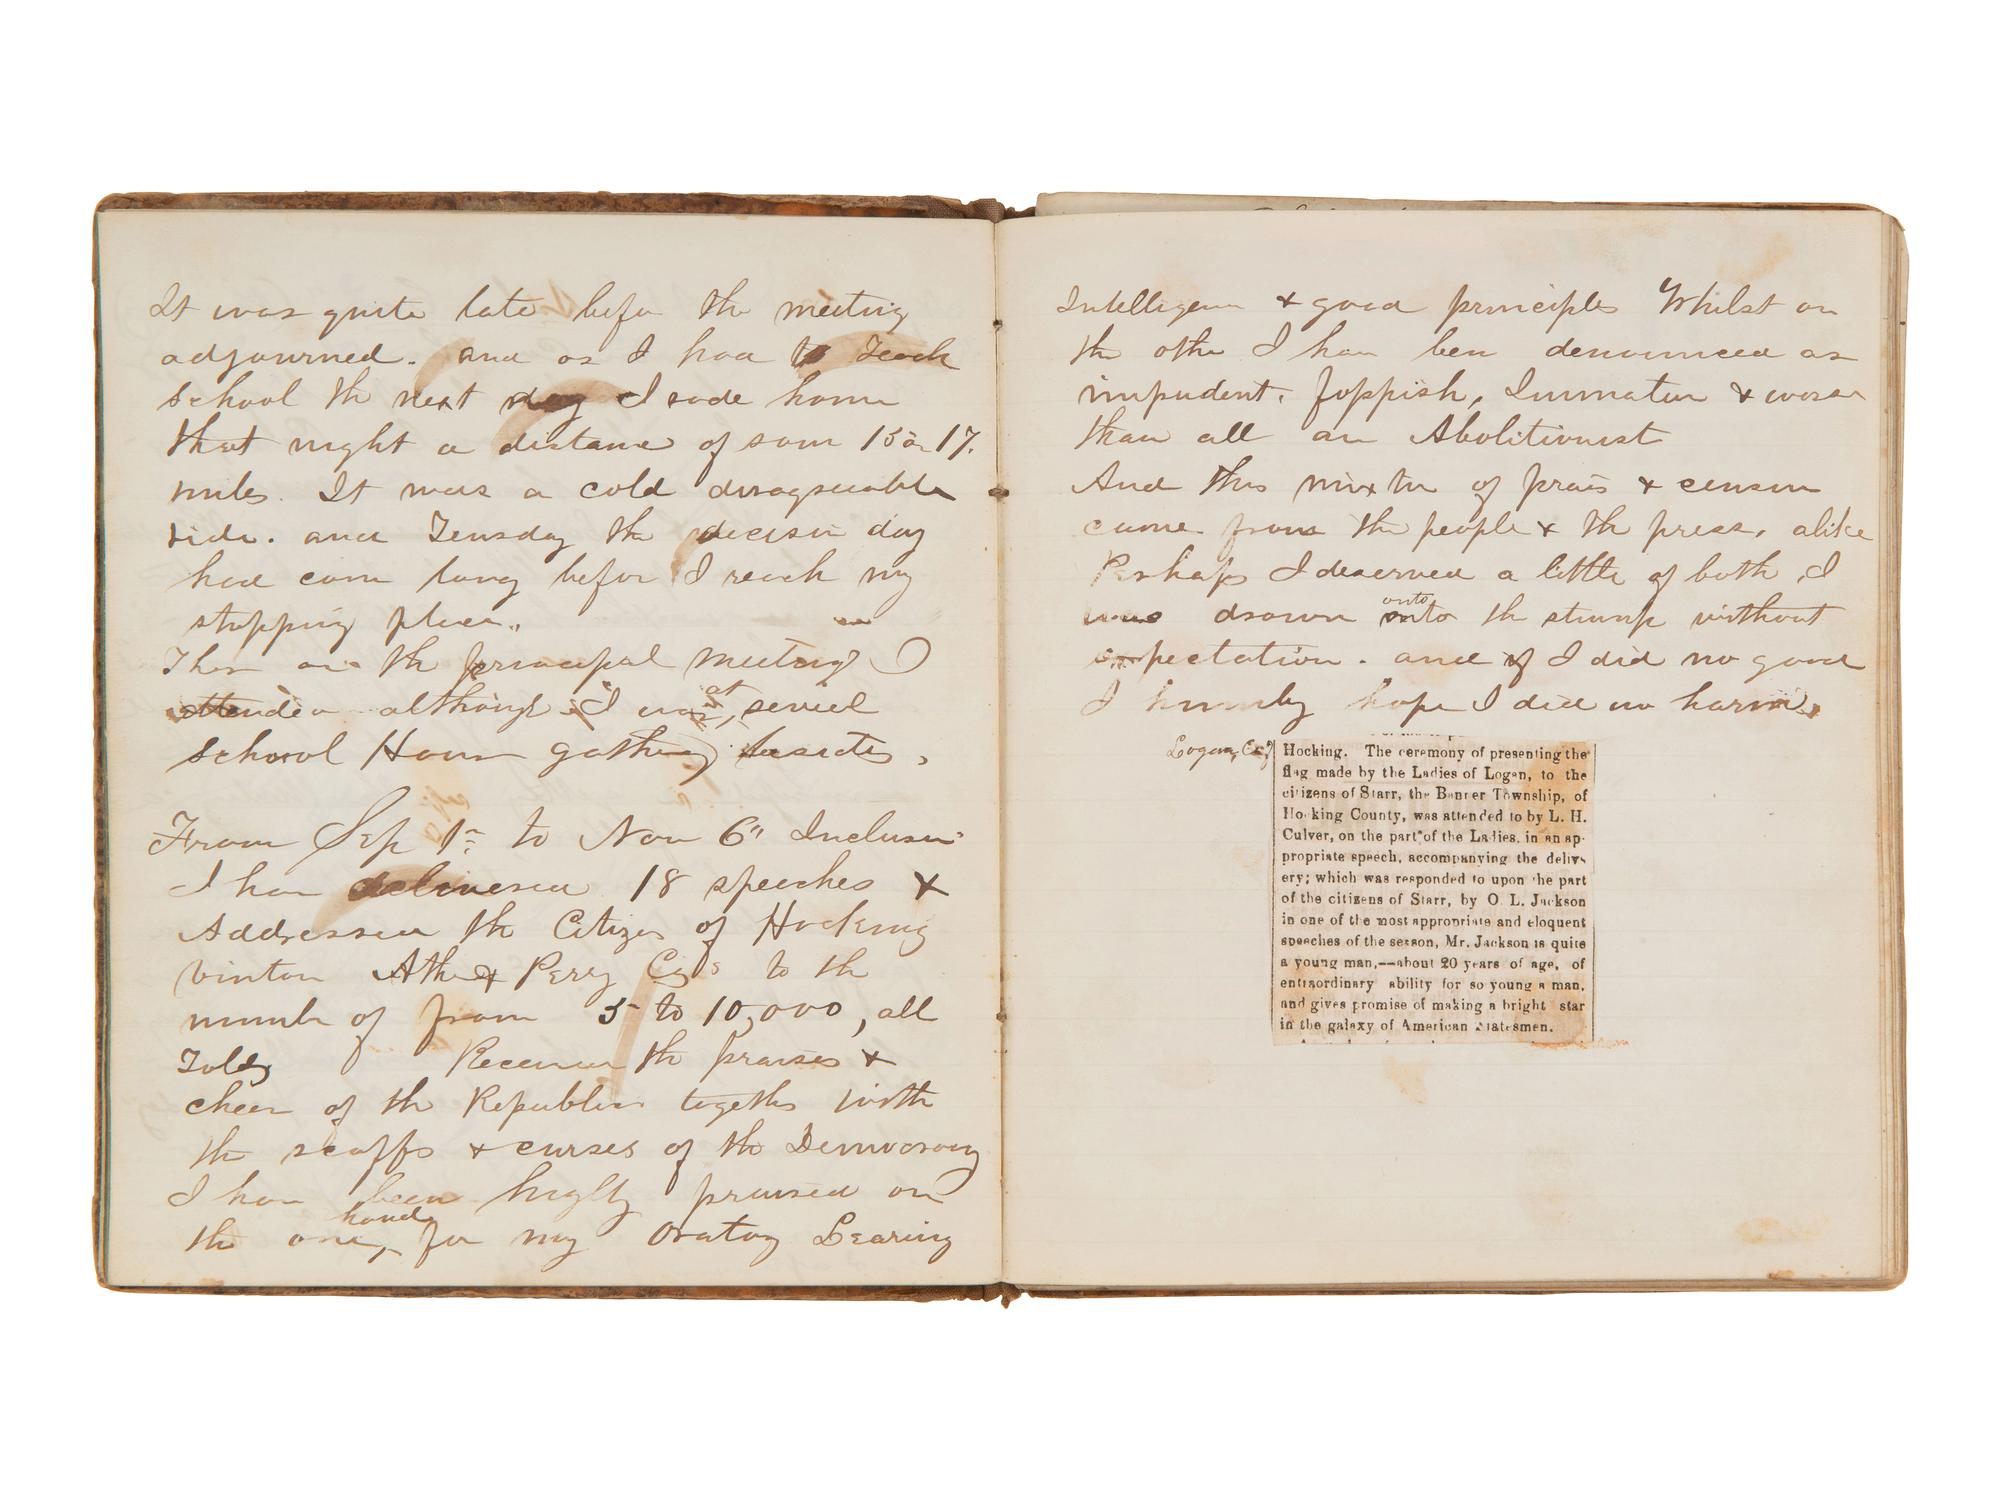 It was quite late before the meeting
adjourned. and as I had to Teach
school the next day I rode home
that night a distance of som 15 or 17.
miles. It was a cold disagreeable
ride. and Teusday the decisin day
had com long before I reach my
stopping place.
Thes are the principal meetings I
attended although I was at, sevrel
school House gathings besides,
From Sep 1st to Nov 6" Inclusive
I have delivered 18 speeches &
Addressed the Citizens of Hocking
Vinton Athe & Perry Cos to the
number of from 5 to 10,000, all
Told, Received the praises &
cheers of the Republicans together with
the scoffs & curses of the Democracy
I have been highly praised on
the one hand, for my Oratory Learing
Intelligence & good principles Whilst on
the other I have been denounced as
impudent, foppish, Immature & worse
than all an Abolitionist
And this mixture of prais & censure
came from the people & the press, alike
Perhaps I deserved a little of both, I
was drawn onto onto the stump without
expectation. and if I did no good
I humbly hope I did no harm,
Logan, Gaz
Hocking. The ceremony of presenting the
flag made by the Ladies of Logan, to the
citizens of Starr, the Banner Township, of
Hocking County, was attended to by L. H.
Culver, on the part of the Ladies, in an ap-
propriate speech, accompanying the deliv-
ery; which was responded to upon the part
of the citizens of Starr, by O. L. Jackson
in one of the most appropriate and eloquent
speeches of the season, Mr. Jackson is quite
a young man,—about 20 years of age, of
extraordinary ability for so young a man,
and gives promise of making a bright star
in the galaxy of American Statesmen.